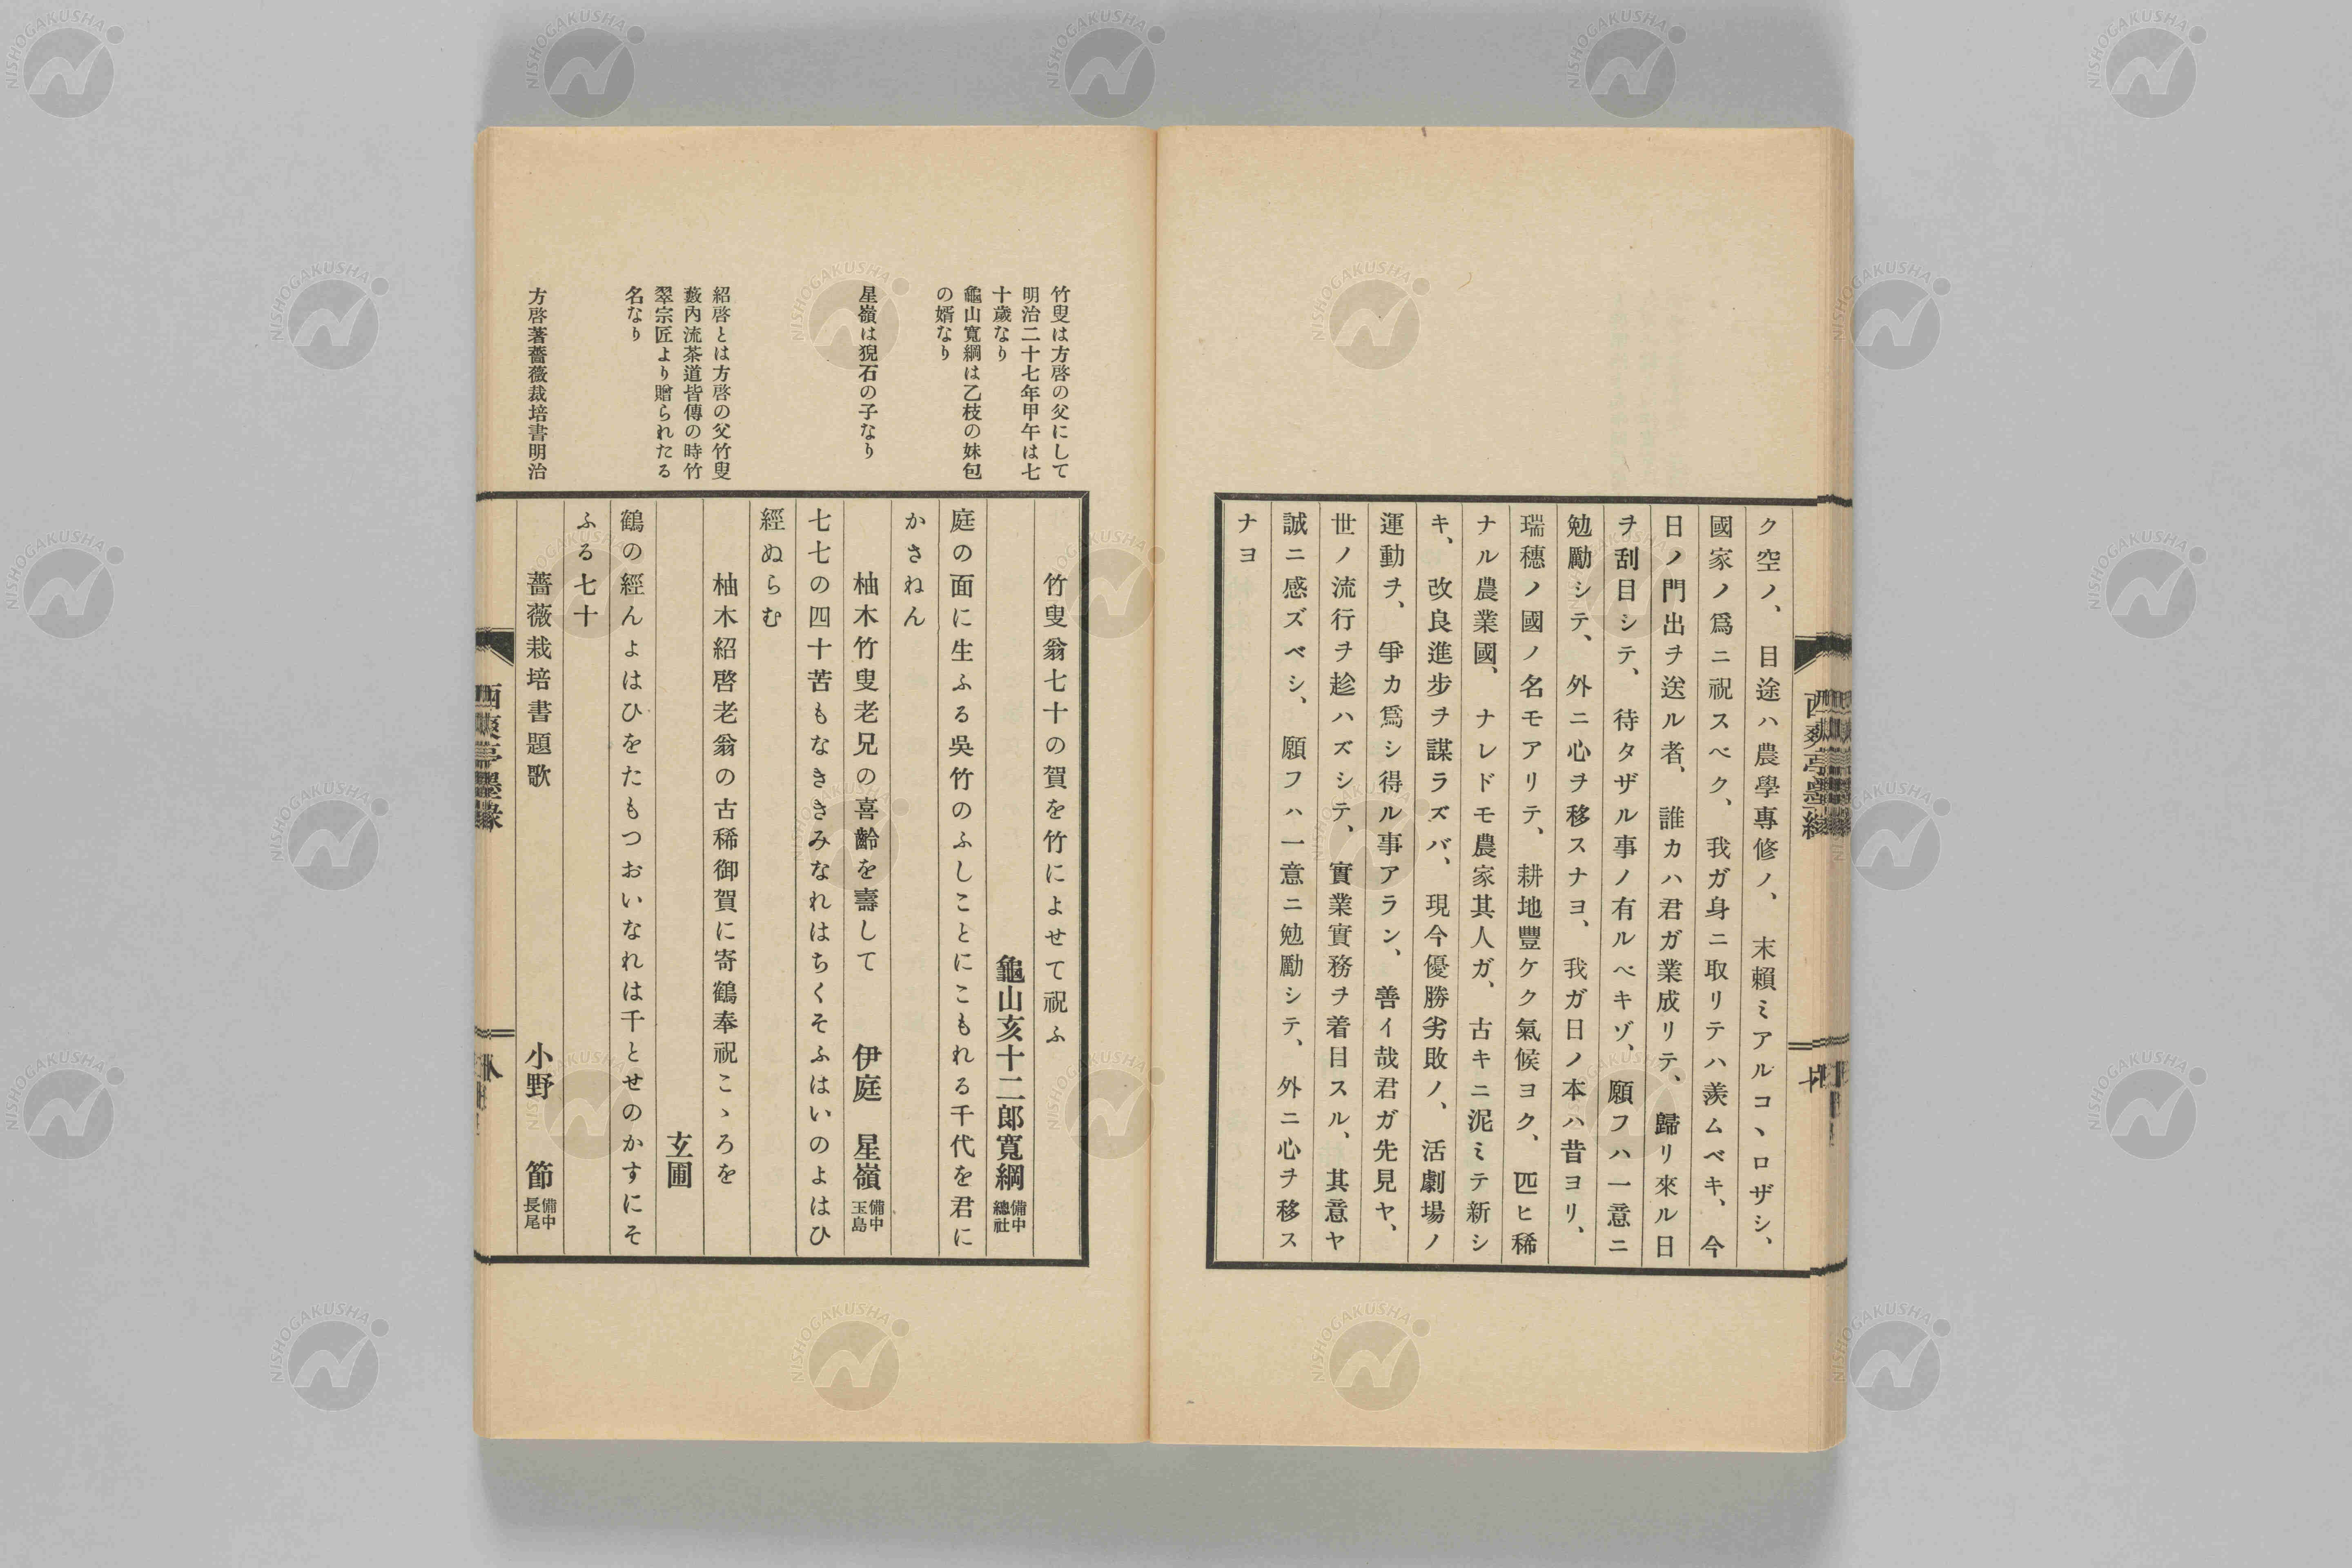 ク空ノ、目途ハ農學專修ノ、末頼ミアルコヽロザシ、
國家ノ爲ニ祝スベク、我ガ身ニ取リテハ羨ムベキ、今
日ノ門出ヲ送ル者、誰カハ君ガ業成リテ、歸リ來ル日
ヲ刮目シテ、待タザル事ノ有ルベキゾ、願フハ一意ニ
勉勵シテ、外ニ心ヲ移スナヨ、我ガ日ノ本ハ昔ヨリ、
瑞穗ノ國ノ名モアリテ、耕地豐ケク氣候ヨク、匹ヒ稀
ナル農業國、ナレドモ農家其人ガ、古キニ泥ミテ新シ
キ、改良進步ヲ謀ラズバ、現今優勝劣敗ノ、活劇場ノ
運動ヲ、爭カ爲シ得ル事アラン、善イ哉君ガ先見ヤ、
世ノ流行ヲ趁ハズシテ、實業實務ヲ着目スル、其意ヤ
誠ニ感ズベシ、願フハ一意ニ勉勵シテ、外ニ心ヲ移ス
ナヨ
西爽亭墨緣
竹叟は方啓の父にして
明治二十七年甲午は七
十歲なり
龜山寬綱は乙枝の妹包
の婿なり
星嶺は猊石の子なり
紹啓とは方啓の父竹叟
藪內流茶道皆傳の時竹
翠宗匠より贈られたる
名なり
方啓著薔薇裁培書明治
竹叟翁七十の賀を竹によせて祝ふ
龜山亥十二郎寬綱 備中總社
庭の面に生ふる吳竹のふしことにこもれる千代を君に
かさねん
柚木竹叟老兄の喜齡を壽して 伊庭 星嶺 備中玉島
七七の四十苦もなききみなれはちくそふはいのよはひ
經ぬらむ
柚木紹啓老翁の古稀御賀に寄鶴奉祝こゝろを
玄圃
鶴の經んよはひをたもつおいなれは千とせのかすにそ
ふる七十
薔薇栽培書題歌 小野 節 備中長尾
西爽亭墨緣